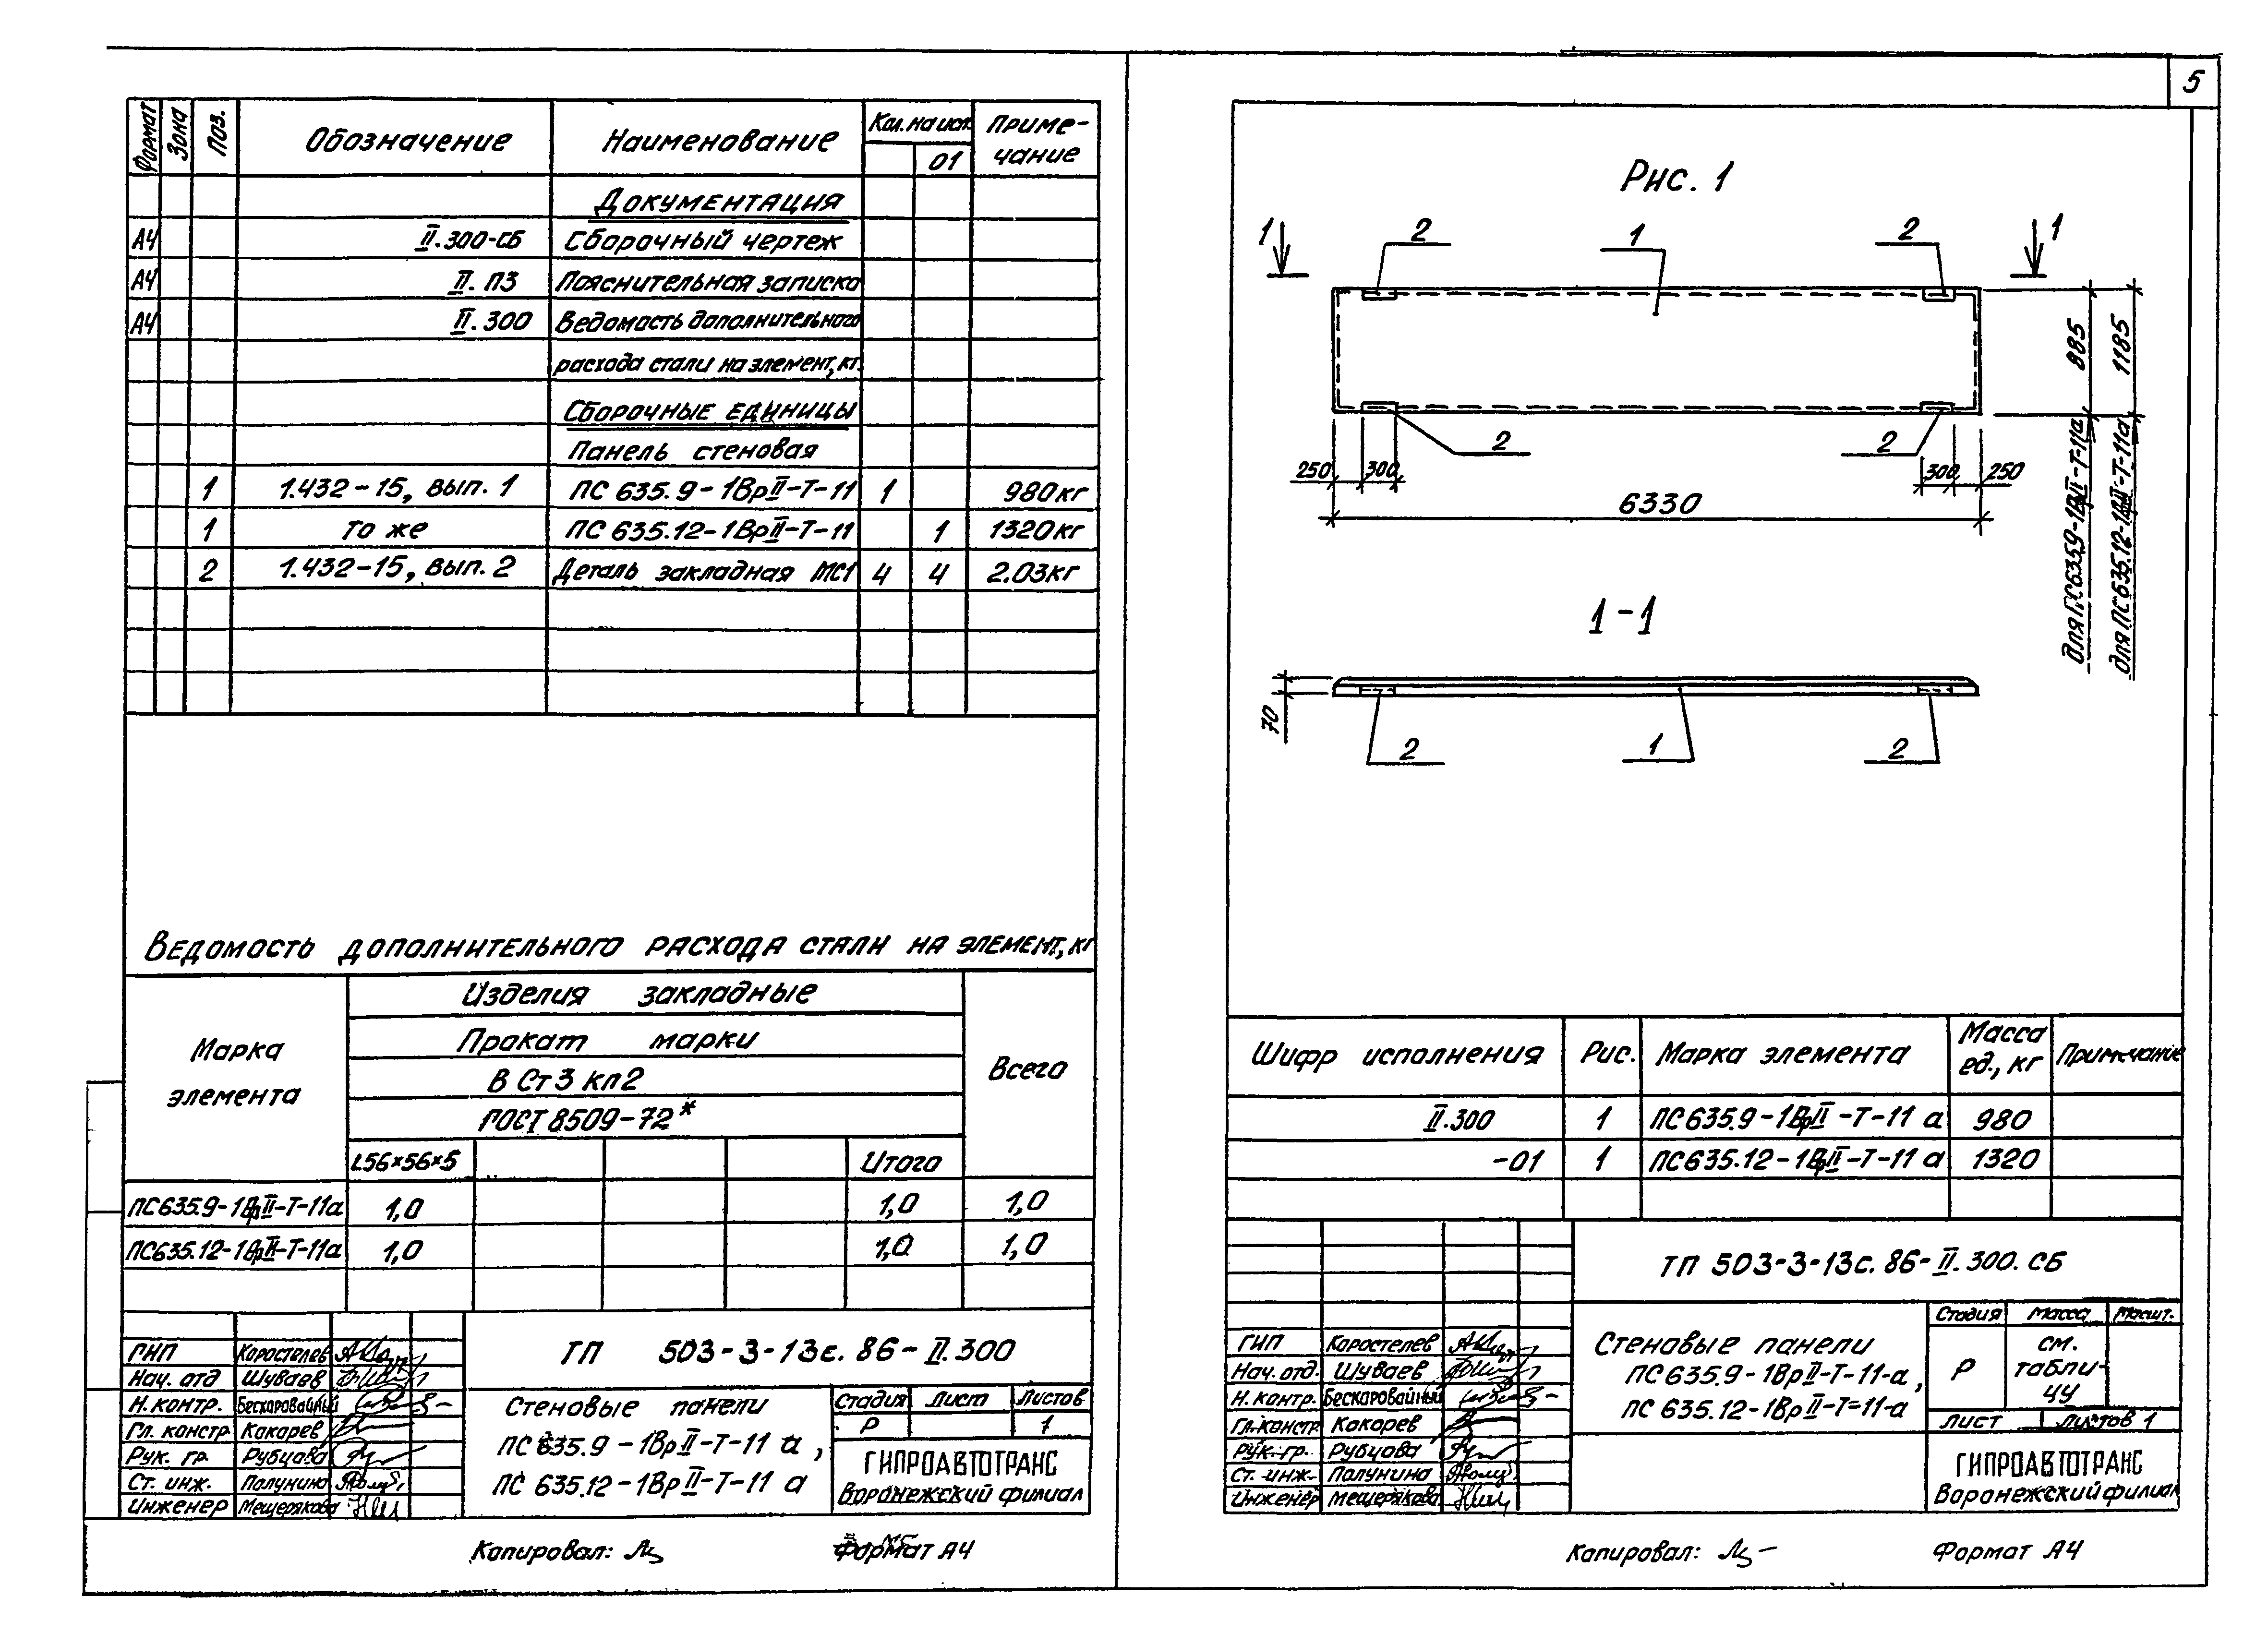 5
Формат Зона Поз. Обозначение Наименование Кол. на исп. Приме-
01 чание
Документация
А4 II.300-СБ Сборочный чертеж
А4 II.ПЗ Пояснительная записка
А4 II.300 Ведомость дополнительного
расхода стали на элемент, кг.
Сборочные единицы
Панель стеновая
1 1.432-15, вып. 1 ПС 635.9-1ВрII-Т-11 1 980кг
1 то же ПС 635.12-1ВрII-Т-11 1 1320кг
2 1.432-15, вып. 2 Деталь закладная МС1 4 4 2.03кг
Ведомость дополнительного расхода стали на элемент, кг
Марка элемента
Изделия закладные
Прокат марки
ВСт3кп2
ГОСТ 8509-72*
Всего
L56×56×5 Итого
ПС635.9-1ВрII-Т-11а 1,0 1,0 1,0
ПС635.12-1ВрII-Т-11а 1,0 1,0 1,0
ГИП Коростелев
Нач. отд Шуваев
Н.контр. Бескоровайный
Гл. констр Какорев
Рук. гр. Рубцова
Ст. инж. Полунина
Инженер Мещерякова
ТП 503-3-13с.86-II.300
Стеновые панели
ПС 635.9-1ВрII-Т-11 а,
ПС 635.12-1ВрII-Т-11 а
Стадия Лист Листов
Р 1
ГИПРОАВТОТРАНС
Воронежский филиал
Копировал:
Формат А4
Рис. 1
1 2 1 2 1
2 2
250 300 300 250
6330
885
1185
Для ПС635.9-1ВрII-Т-11а
Для ПС635.12-1ВрII-Т-11а
1-1
70
2 1 2
Шифр исполнения Рис. Марка элемента Масса ед., кг Примечание
II.300 1 ПС635.9-1ВрII-Т-11 а 980
-01 1 ПС635.12-1ВрII-Т-11 а 1320
ТП 503-3-13с.86-II.300.СБ
ГИП Коростелев
Нач. отд. Шуваев
Н. контр. Бескоровайный
Гл.констр Какорев
Рук. гр. Рубцова
Ст. инж. Полунина
Инженер Мещерякова
Стеновые панели
ПС 635.9-1ВрII-Т-11-а,
ПС 635.12-1ВрII-Т-11-а
Стадия Масса Масшт.
Р см. табли-
цу
Лист Листов 1
ГИПРОАВТОТРАНС
Воронежский филиал
Копировал:
Формат А4